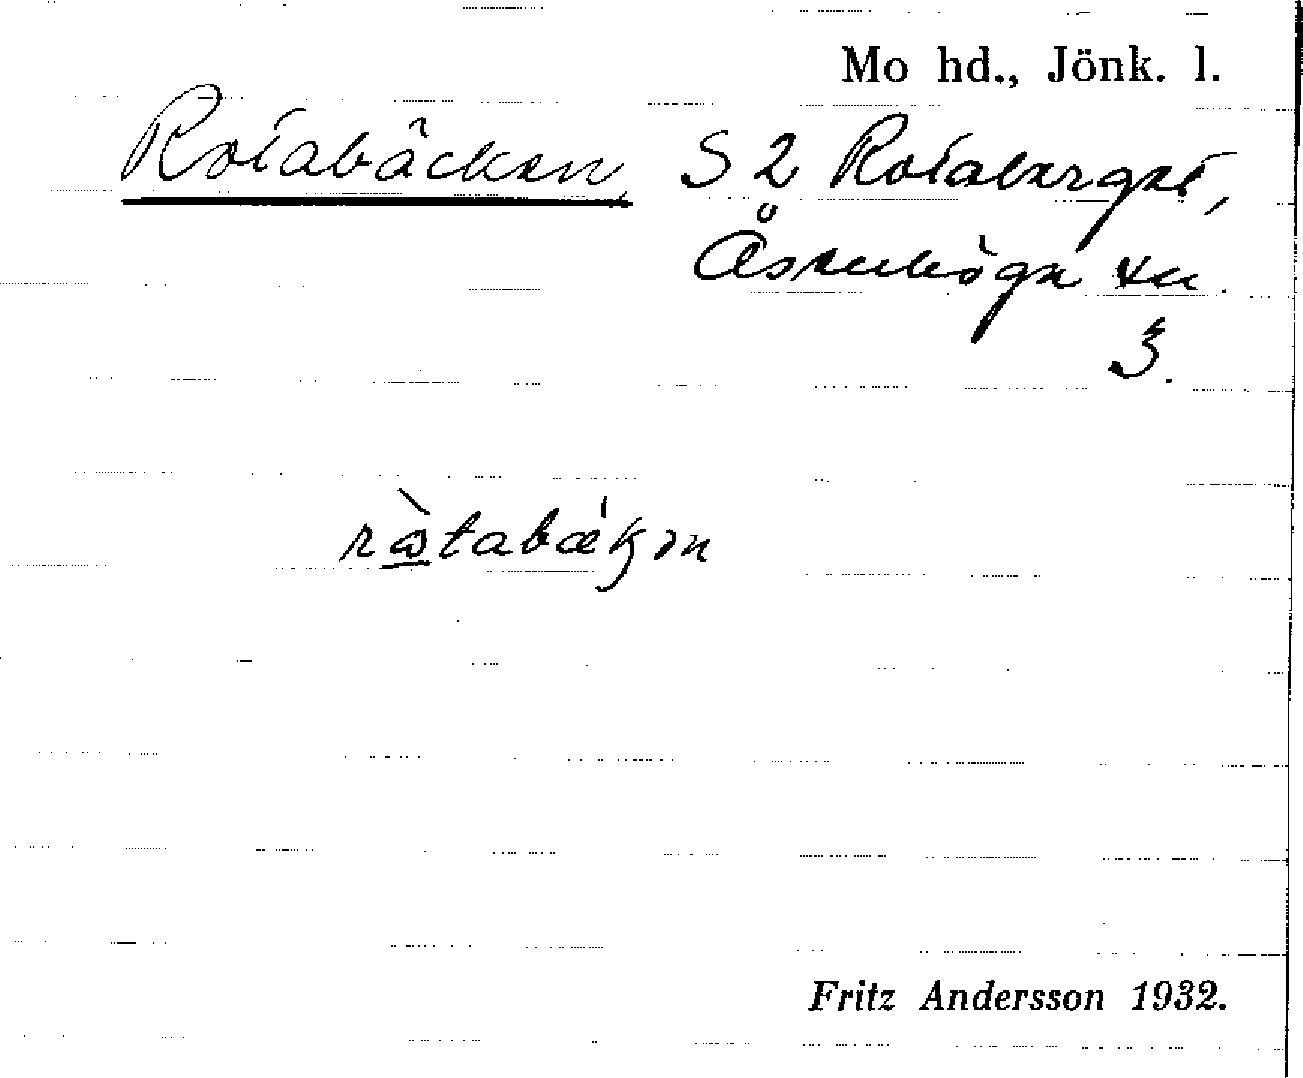 Mo hd., Jönk. l.
Rotabäcken S 2 Rotaberget,
Åsenhöga sn
3.
ràtabækən
Fritz Andersson 1932.